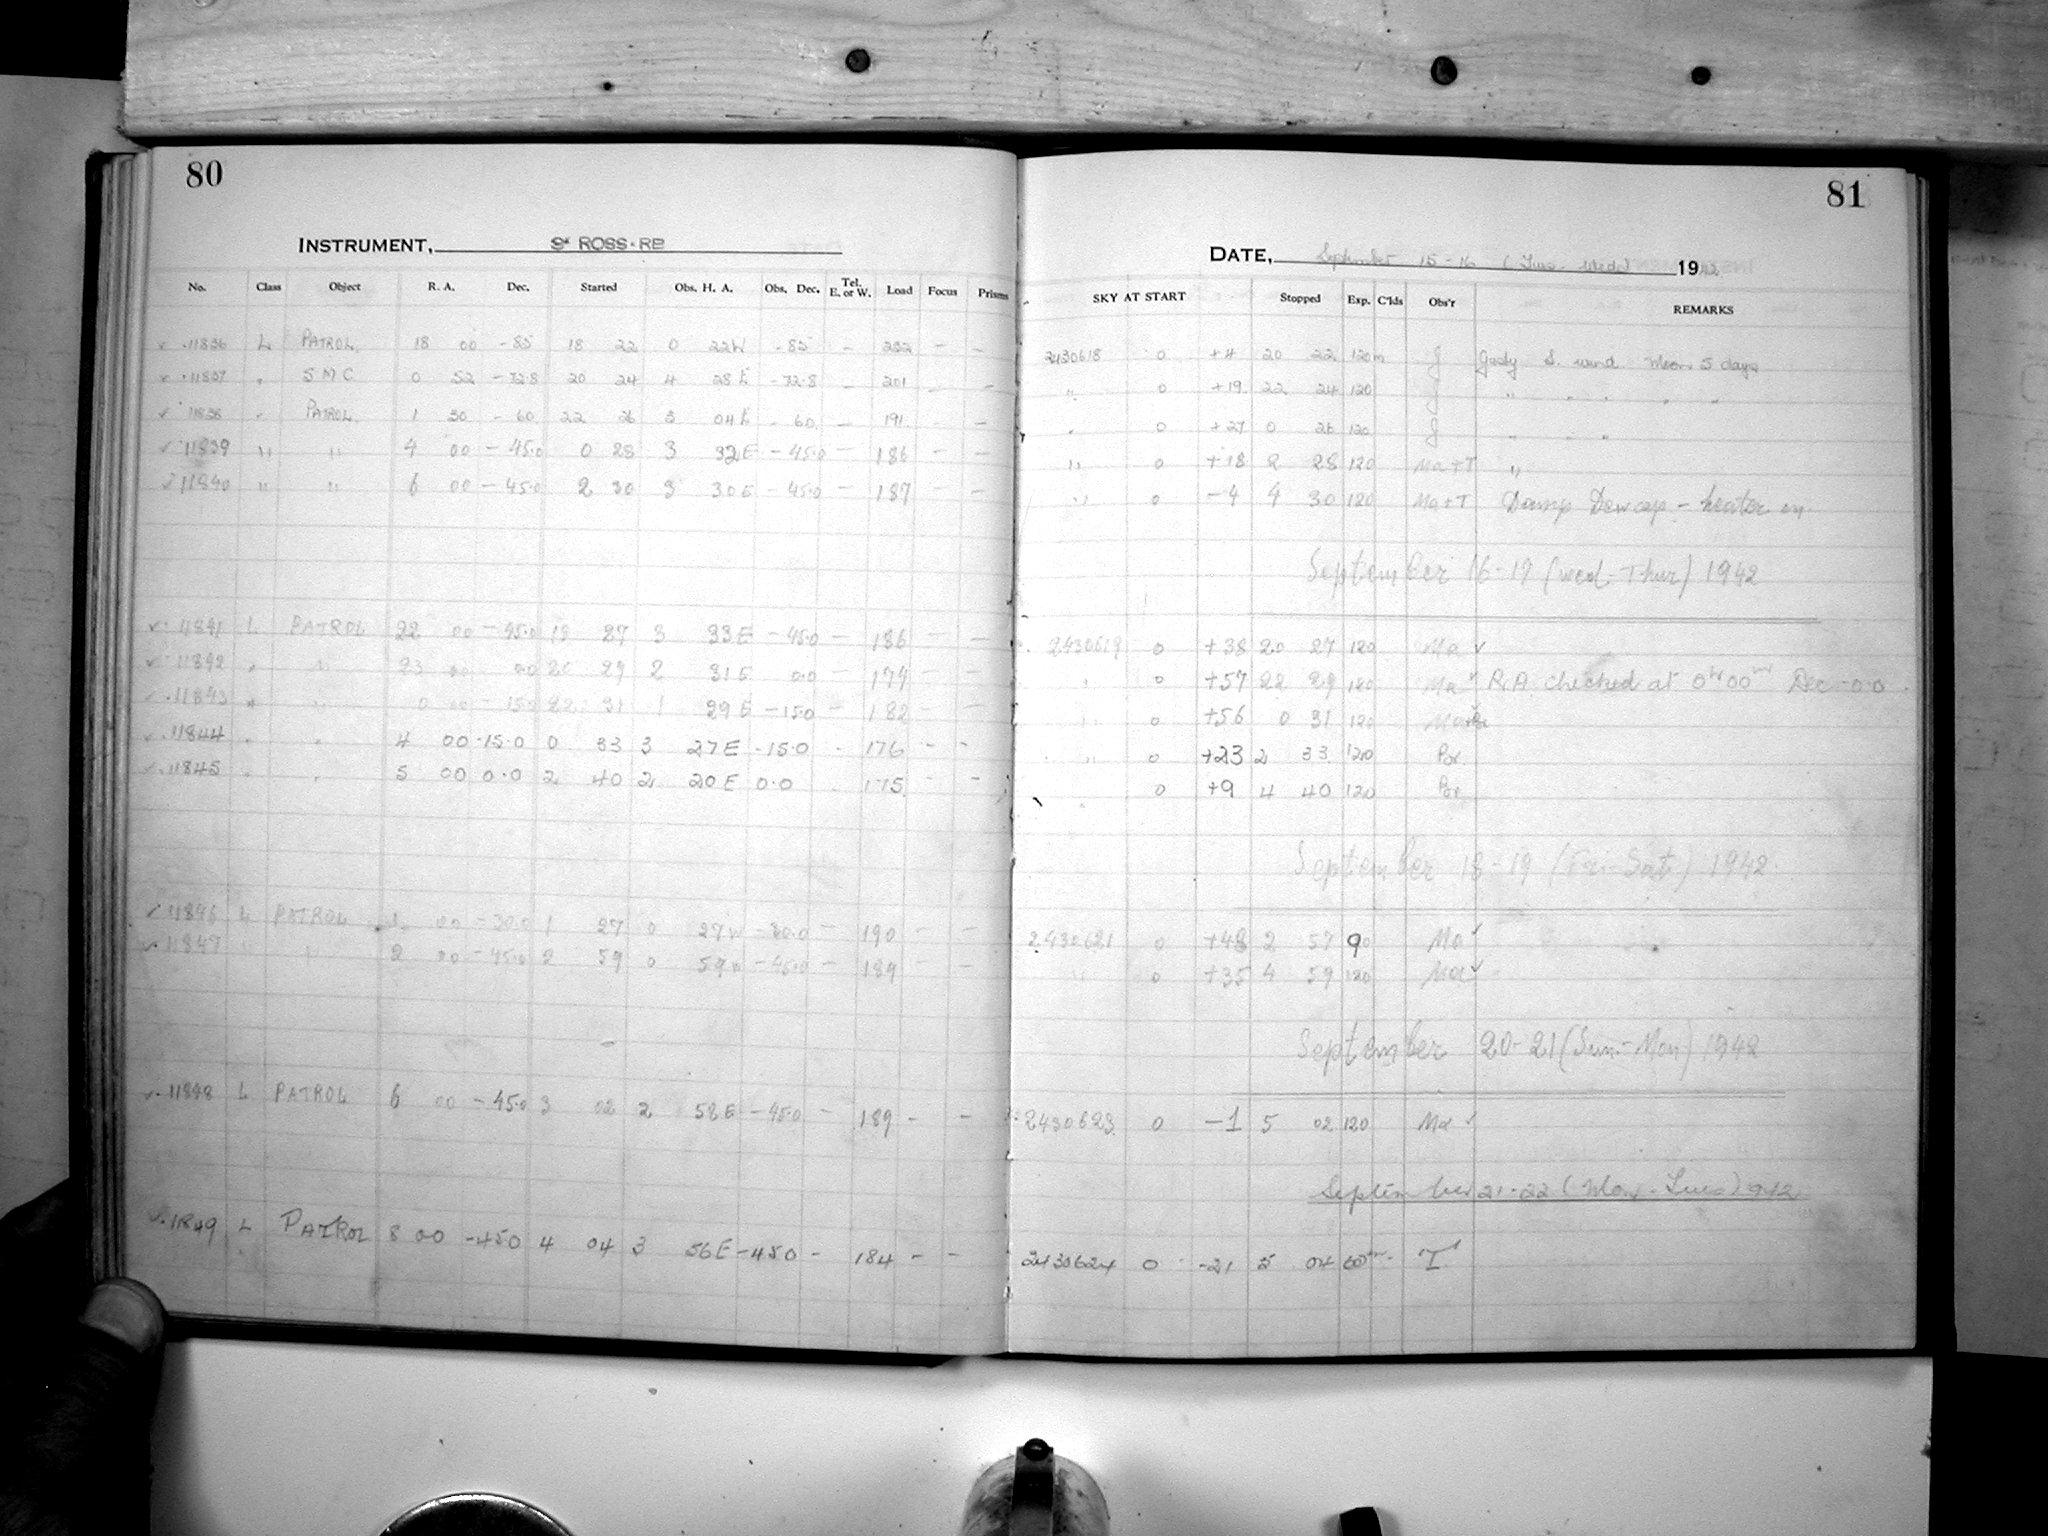 80
INSTRUMENT, ROSS-RB
No. Class Object R. A. Dec. Started Obs. H. A. Obs. Dec. Tel. E. or W. Load Focus Prisms
11836 L PATROL 18 00 -85 18 22 0 22W -85 - 232 - -
11837 " SMC 0 52 -72.8 20 24 4 28E -72.8 - 201 - -
11838 " PATROL 1 30 -60 22 26 3 04E -60 - 191 - -
11839 " " 4 00 -45.0 0 28 3 32E -45.0 - 186 - -
11840 " " 6 00 -45.0 2 30 3 30E -45.0 - 187 - -
11841 L PATROL 22 00 -45.0 18 27 3 33E -45.0 - 186 - -
11842 " " 23 00 0.0 20 29 2 31E 0.0 - 174 - -
11843 " " 0 00 -15.0 22 31 1 29E -15.0 - 182 - -
11844 " " 4 00 -15.0 0 33 3 27E -15.0 - 176 - -
11845 " " 5 00 0.0 2 40 2 20E 0.0 175 - -
11846 L PATROL 1 00 -30.0 1 27 0 27W -30.0 - 190 - -
11847 " " 2 00 -45.0 2 59 0 59 -45.0 - 189 - -
11848 L PATROL 6 00 -45.0 3 02 2 58E -45.0 - 189 - -
11849 L PATROL 8 00 -45.0 4 04 3 56E -45.0 - 184 - -
81
DATE, September 15-16 (Tues-Weds) 1942
SKY AT START Stopped Exp. C'lds Obs'r REMARKS
2430618 0 +4 20 22 120m J Gusty S. wind Moon 5 days
" 0 +19 22 24 120 J " " " " "
" 0 +27 0 26 120 J " " "
" 0 +18 2 28 120 Ma+T "
" 0 -4 4 30 120 Ma+T Damp Dewcap - heater on
September 16-17 (Wed.-Thur) 1942
2430619 0 +38 20 27 120 Ma ✓
" 0 +57 22 29 120 Ma ✓ R.A. checked at 0h 00m Dec -0.0
" 0 +56 0 31 120
" 0 +23 2 33 120 Br
" 0 +9 4 40 120 Br
September 18-19 (Fri-Sat) 1942
2430621 0 +48 2 57 90 Ma ✓
" 0 +35 4 59 120 Ma ✓
September 20-21 (Sun.-Mon) 1942
2430623 0 -1 5 02 120 Ma ✓
September 21-22 (Mon-Tues) 1942
2430624 0 -21 5 04 60m T